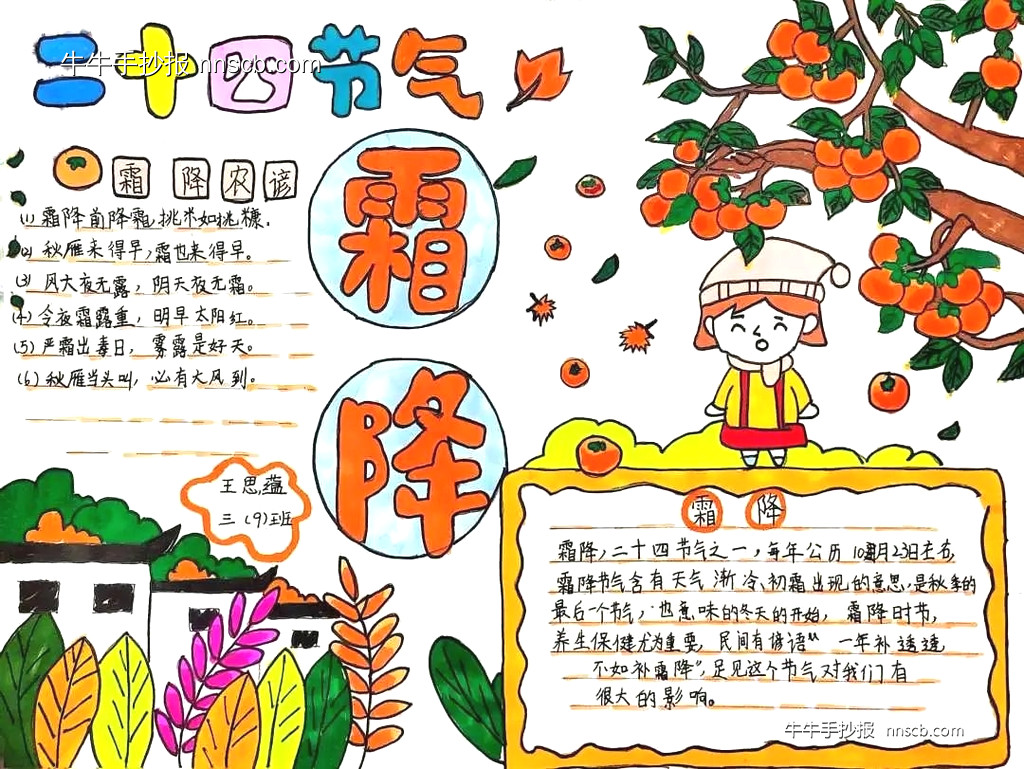 二十四节气
牛牛手抄报 nnscb.com
霜降农谚
(1) 霜降前降霜,挑米如挑糠。
(2) 秋雁来得早,霜也来得早。
(3) 风大夜无露,阴天夜无霜。
(4) 今夜霜露重,明早太阳红。
(5) 严霜出毒日,雾露是好天。
(6) 秋雁当头叫,必有大风到。
霜
降
王思蕴
三(9)班
霜降
霜降,二十四节气之一,每年公历10月23日左右,
霜降节气含有天气渐冷、初霜出现的意思,是秋季的
最后个节气,也意味的冬天的开始,霜降时节,
养生保健尤为重要,民间有谚语“一年补透透
不如补霜降”,足见这个节气对我们有
很大的影响。
牛牛手抄报 nnscb.com